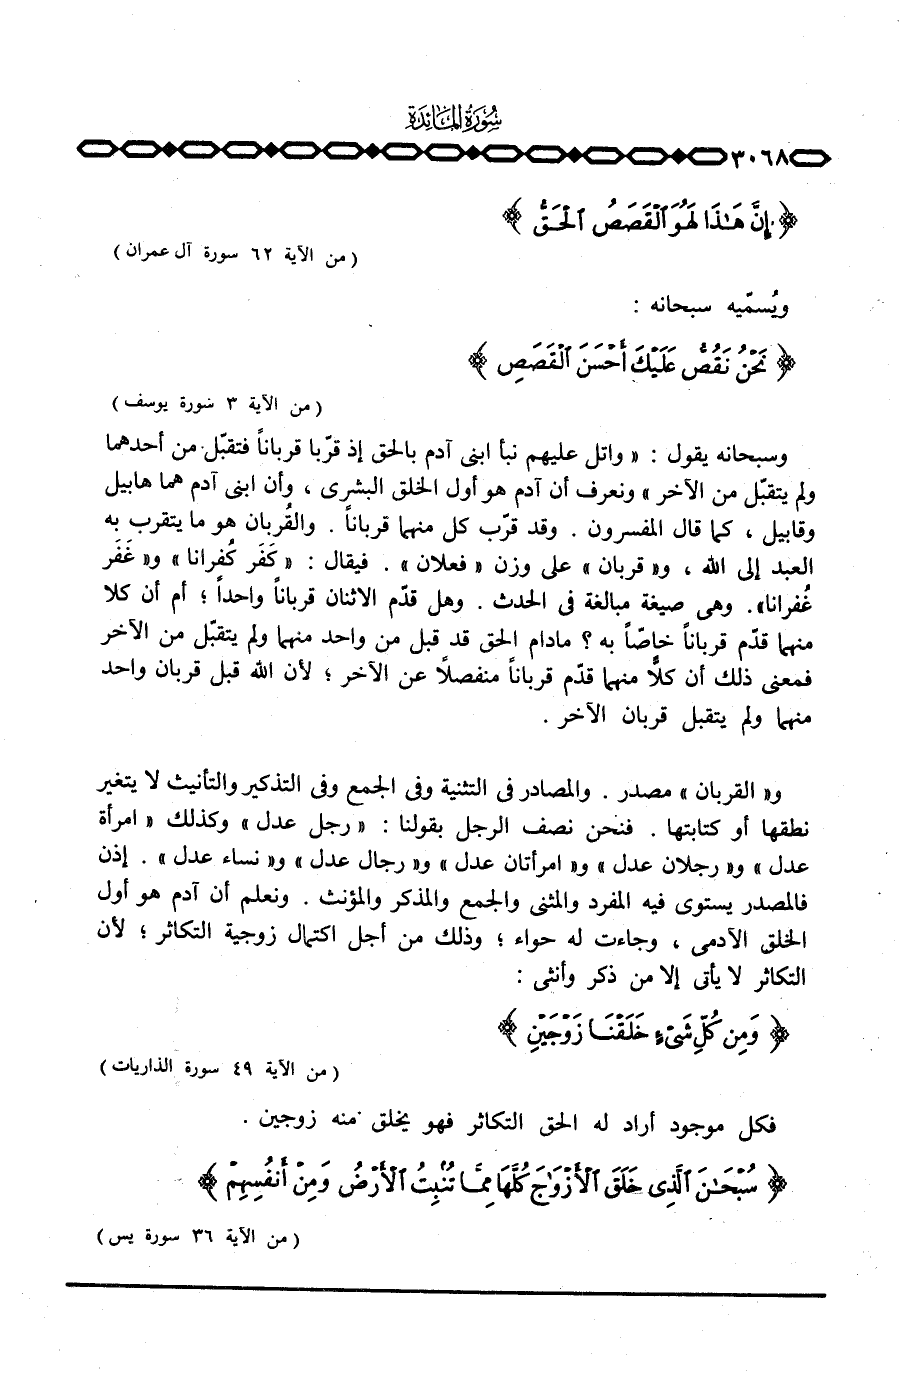 سُورَةُ المَائِدَةِ
٣٠٦٨
﴿ إِنَّ هَـٰذَا لَهُوَ ٱلْقَصَصُ ٱلْحَقُّ ﴾
( من الآية ٦٢ سورة آل عمران )
ويُسمّيه سبحانه :
﴿ نَحْنُ نَقُصُّ عَلَيْكَ أَحْسَنَ ٱلْقَصَصِ ﴾
( من الآية ٣ سورة يوسف )
وسبحانه يقول : « واتل عليهم نبأ ابنى آدم بالحق إذ قرّبا قرباناً فتقبّل من أحدهما
ولم يتقبّل من الآخر » ونعرف أن آدم هو أول الخلق البشرى ، وأن ابنى آدم هما هابيل
وقابيل ، كما قال المفسرون . وقد قرّب كل منهما قرباناً . والقُربان هو ما يتقرب به
العبد إلى الله ، و« قربان » على وزن « فعلان » . فيقال : « كَفَر كُفرانا » و« غَفَر
غُفرانا». وهى صيغة مبالغة فى الحدث . وهل قدّم الاثنان قرباناً واحداً ؛ أم أن كلا
منهما قدّم قرباناً خاصّاً به ؟ مادام الحق قد قبل من واحد منهما ولم يتقبّل من الآخر
فمعنى ذلك أن كلاًّ منهما قدّم قرباناً منفصلاً عن الآخر ؛ لأن الله قبل قربان واحد
منهما ولم يتقبل قربان الآخر .
و« القربان » مصدر . والمصادر فى التثنية وفى الجمع وفى التذكير والتأنيث لا يتغير
نطقها أو كتابتها . فنحن نصف الرجل بقولنا : « رجل عدل » وكذلك « امرأة
عدل » و« رجلان عدل » و« امرأتان عدل » و« رجال عدل » و« نساء عدل » . إذن
فالمصدر يستوى فيه المفرد والمثنى والجمع والمذكر والمؤنث . ونعلم أن آدم هو أول
الخلق الآدمى ، وجاءت له حواء ؛ وذلك من أجل اكتمال زوجية التكاثر ؛ لأن
التكاثر لا يأتى إلا من ذكر وأنثى :
﴿ وَمِن كُلِّ شَىْءٍ خَلَقْنَا زَوْجَيْنِ ﴾
( من الآية ٤٩ سورة الذاريات )
فكل موجود أراد له الحق التكاثر فهو يخلق منه زوجين .
﴿ سُبْحَـٰنَ ٱلَّذِى خَلَقَ ٱلْأَزْوَٰجَ كُلَّهَا مِمَّا تُنۢبِتُ ٱلْأَرْضُ وَمِنْ أَنفُسِهِمْ ﴾
( من الآية ٣٦ سورة يس )